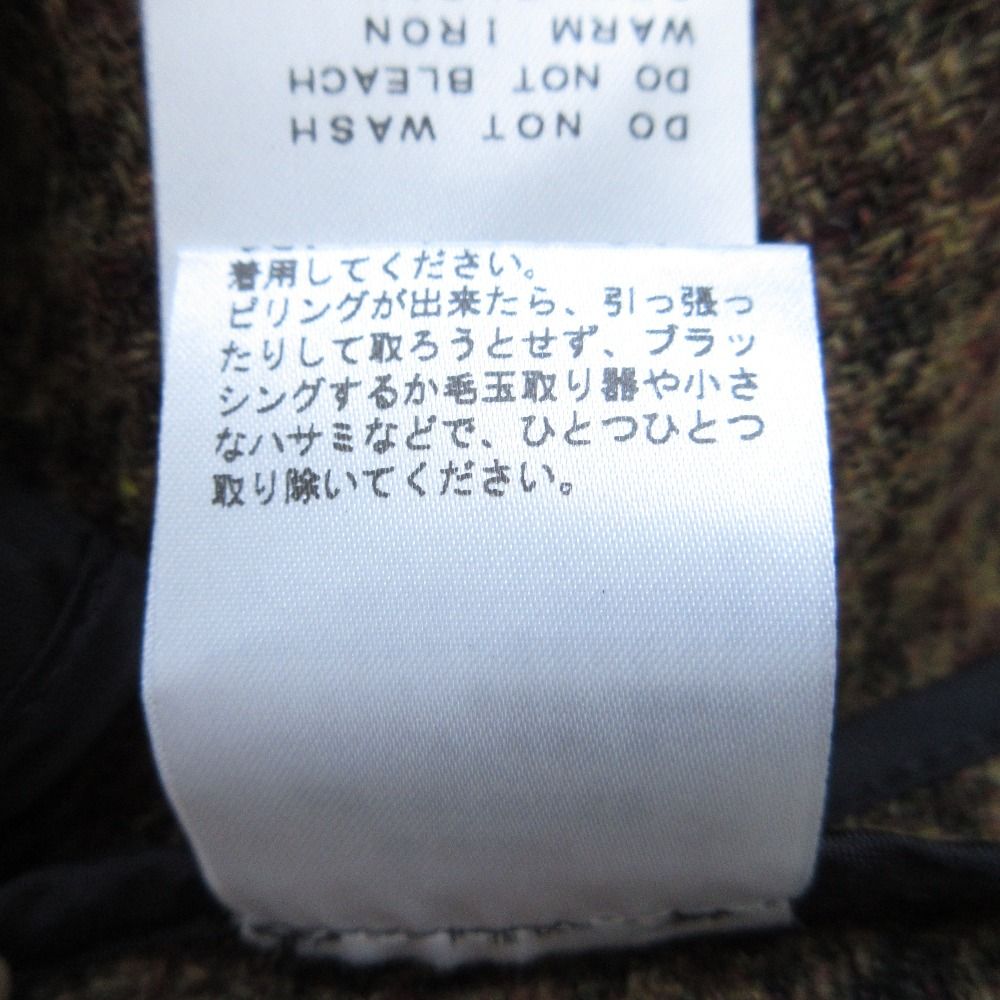 DO NOT WASH
DO NOT BLEACH
WARM IRON
着用してください。
ピリングが出来たら、引っ張っ
たりして取ろうとせず、ブラッ
シングするか毛玉取り器や小さ
なハサミなどで、ひとつひとつ
取り除いてください。